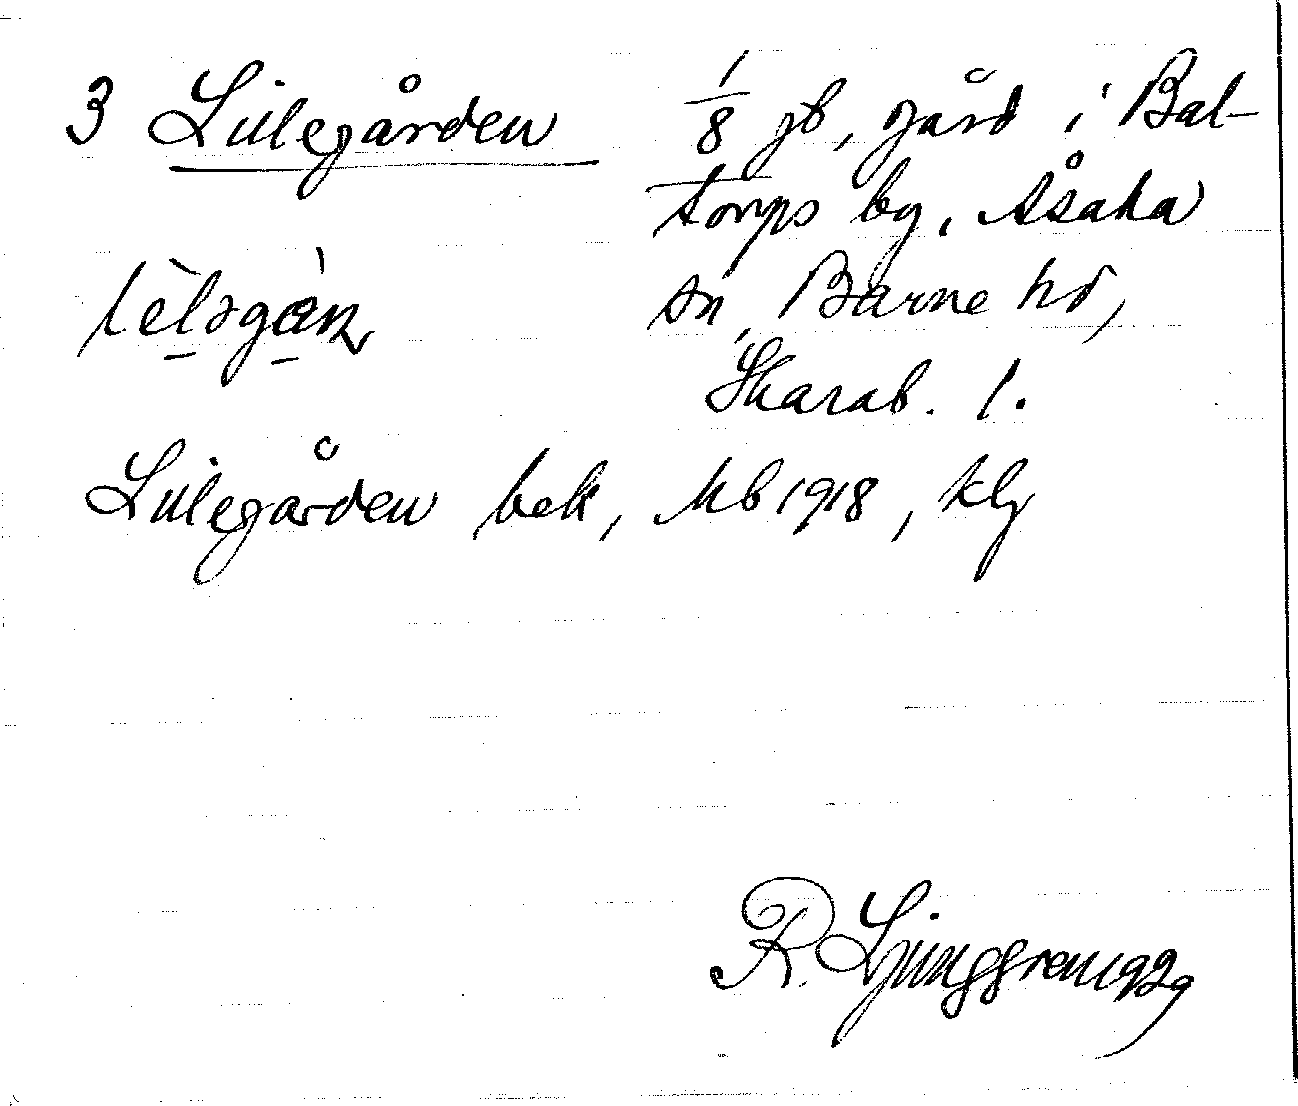 3 Lillegården 1/8 gb, gård i Bal-
torps by, Åsaka
lèl̠əgá̠ɳ sn, Barne hd,
Skarab. l.
Lillegården bek, Mb 1918, klg
R. Ljunggren 1929